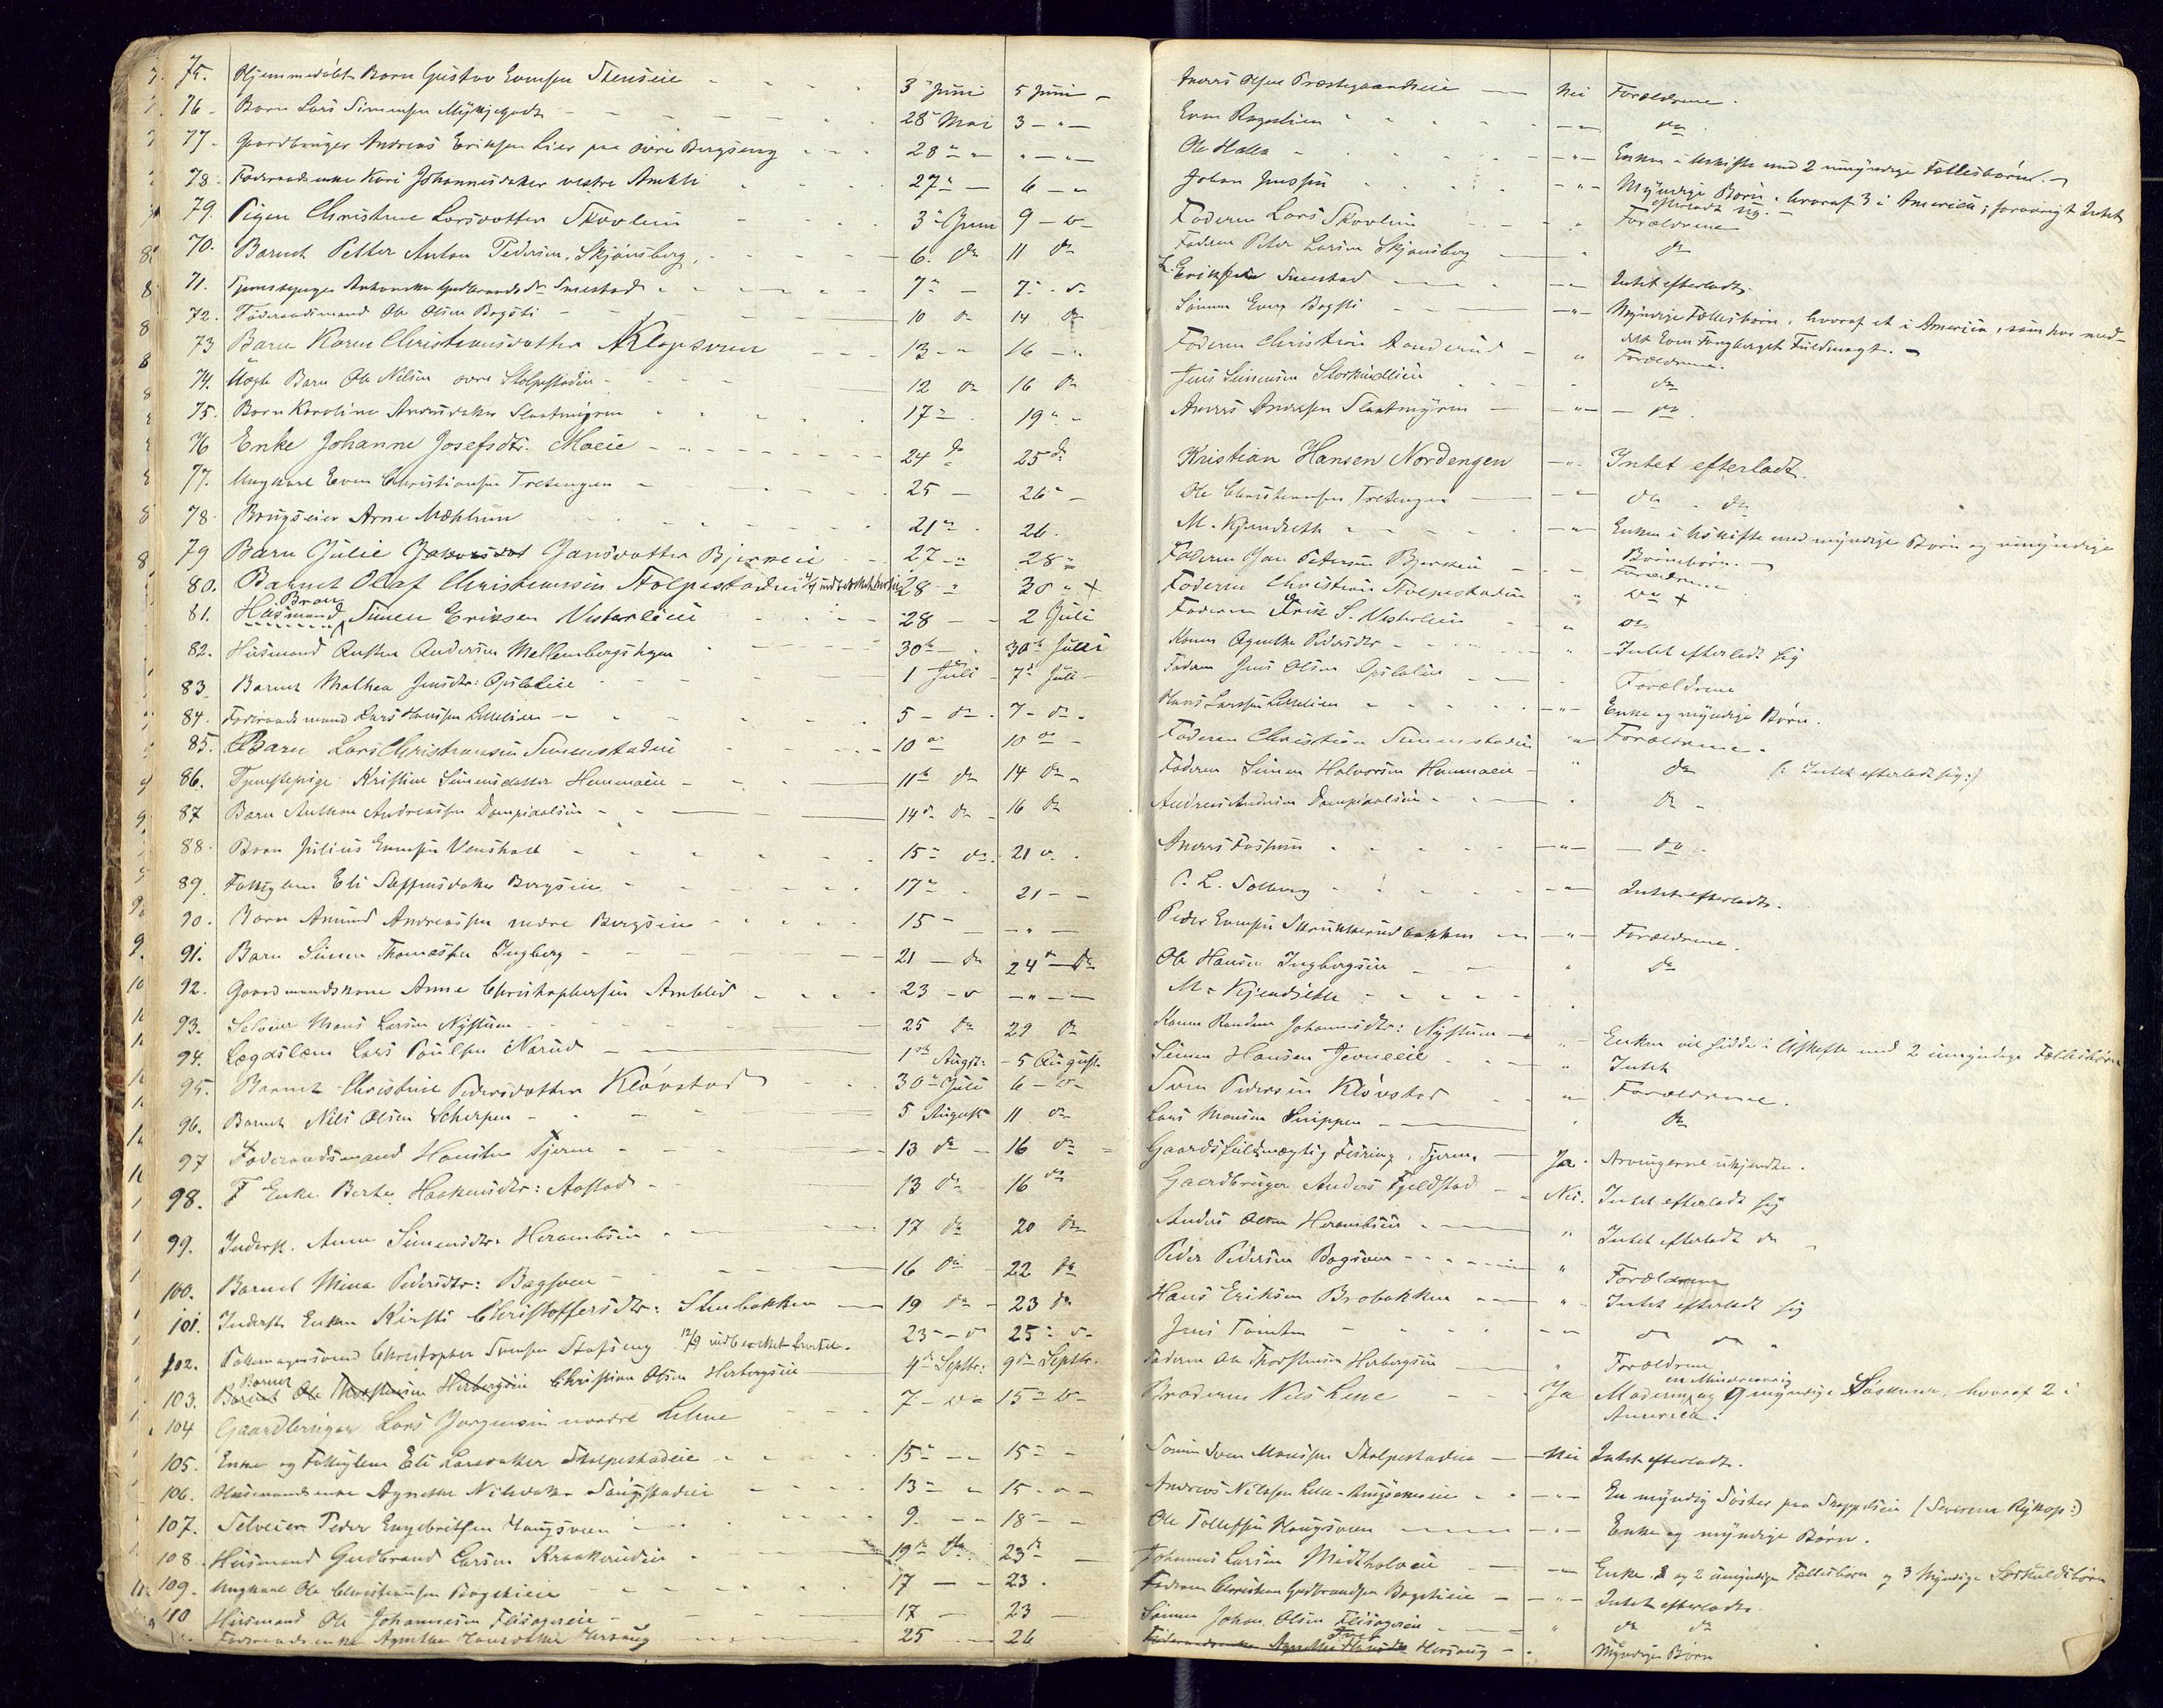 75. Hjemmedöbt Barn Gustav Evensen Stenseie 3 Juni 5 Juni Anders Olsen Præstegaardseie Nei Forældrene.
76 Barn Lars Simensen 28 Mai 3 Even do
77 Gaardbruger Andreas Eriksen Lier paa övre Bergseng 28 Ole Enken i Uskifte med 2 umyndige Fællesbörn.
78. Föderaadsenke Kari Johannesdatter vestre Amlli 27 6 Johan Jenssen Myndige Börn, hvoraf 3 i America; foravrigt Intet efterladt sig.
79. Pigen Christine Larsdatter Skovlien 3 Juni 9 Faderen Lars Skovlien Forældrene
70. Barnet Petter Anton Pedersen, Skjönsberg 6. do 11 do Faderen Peter Larsen Skjönsberg do
71. Tjenestepige Smestad 7 7 L. Eriksen Smestad Intet efterladt.
72. Föderaadsmand Ole Olsen Bogsti 10 do 14 do Sönnen Even Bogsti Myndige Fællesbörn, hvoraf et i America, som har meddelt Even Fangberget Fuldmagt.
73 Barn Karen Christiansdatter 13 16 Faderen Christian Forældrene.
74. Uægte Barn Ole Nilsen övre Stolpestadeie 12 do 16 do Jens Simensen do
75. Barn Karoline Andersdatter Slaatmyren 17 19 Anders Andersen Slaatmyren do
76 Enke Johanne Josefsdtr. Moeie 24 do 25 do Kristian Hansen Nordengen Intet efterladt.
77. Ungkarl Even Christiansen Tretengen 25 26 Ole Christiansen Tretengen do do
78. Brugseier Arne Mæhlum 21 26. M. Kjendseth Enken i Uskifte med myndige Börn og umyndige Börnebörn.
79 Barn Julie Jansdatter Bjerkeie 27 28 Faderen Jan Petersen Bjerkeie Forældrene
80. Barnet Olaf Christiansen Stolpestadeie 28 30 + Faderen Christian Stolpestadeie do +
81. Husmand Barn Simen Eriksen Vesterleeie 28 2 Juli Faderen Erik S. Vesterleie do
82. Husmand Anders Andersen Mellembergshagen 30te 30te Juli Konen Agnethe Pedersdtr Intet efterladt sig
83. Barnet Mathea Jensdtr. Opsaleie 1 Juli 7 Juli Faderen Jens Olsen Opsaleie Forældrene
84. Föderaadsmand Lars Hansen Lillelien 5 do 7 do Hans Larssen Lillelien Enke og myndige Börn.
85. Barn Lars Christiansen Simenstadeie 10 do 10 do Faderen Christian Simenstadeie Forældrene.
86. Tjenestepige Kristine Simensdatter Hemmaeie 11te do 14 do Faderen Simen Halvorsen Hemmaeie do (: Intet efterladt sig :)
87 Barn Anthon Andreassen 14de do 16 do Andreas Andersen do
88. Barn Julius Evensen Venshall 15 do 21 Anders Do
89. Fattiglem Eli Steffensdatter Bergseie 17 21 P. L. Solberg Intet efterladt.
90. Barn Amund Andreassen nedre Bergseie 15 Peder Evensen Skrukkerudbakken Forældrene.
91. Barn Simen Thomassen Ingberg 21 do 24 do Ole Hansen Ingbergseie do
92. Gaardmandskone Anne Christophersen Amblid 23 M. Kjendseth
93. Selveier Mons Larsen Nystuen 25 do 29 do Konen Randine Johannesdtr: Nystuen Enken vil sidde i Uskifte med 2 umyndige Fællesbörn
94. Lægdslem Lars Paulsen Narud 1ste Augst: 5 August Simen Hansen Jevneeie Intet
95. Barnet Christine Pedersdatter Klövstad 30 Juli 6 Sven Pedersen Klövstad Forældrene.
96. Barnet Nils Olsen Scherpen 5 August 11 do Lars Monsen Snippen do
97 Föderaadsmand Tjerne 13 do 16 do Gaardsfuldmægtig Feiring, Tjerne Ja Arvingerne ukjendte.
98. F Enke Berte Haakensdtr: Aastad 13 do 16 do Gaardbruger Anders Fjeldstad Nei. Intet efterladt sig
99. Inderst. Anne Simensdtr. Herambseie 17 do 20 do Anders Olsen Herambseie Intet efterladt do
100. Barnet Mina Pedersdtr: Bagsveen 16 do 22 do Peder Pedersen Bagsveen Forældrene
101. Inderst Enken Kirsti Christoffersdtr: Stenbakken 19 do 23 do Hans Eriksen Brobakken Intet efterladt sig
102. Pottemagersvend Christopher Svensen 12/9 indberettet 23 25 Jens Tömten do do
103. Barnet Christian Olsen Herbergseie 4 Septbr: 9de Septbr. Faderen Ole Thorstensen Herbergseie Forældrene
104 Gaardbruger Lars Jörgensen nordre Lehne 7 15 Broderen Nils Lene Ja Moderen, en Mindreaarig og 9 myndige Söskende, hvoraf 2 i America.
105. Enke og Fattiglem Eli Larsdatter Stolpestadeie 15 15 Sönnen Sven Monssen Stolpestadeie Nei Intet efterladt.
106. Husmandsenke Agnethe Nilsdatter 13 15 Andreas Nilssen En myndig Söster paa (Severine Rykop:)
107. Selveier Peder Engebretsen Haugsveen 9. 18 Ole Tollefsen Haugsveen Enke og myndige Börn.
108. Husmand Gudbrand Larsen Kraakerudeie 19de do 23 Johannes Larsen Enke, og 2 umyndige Fællesbörn og 3 Myndige Særkuldsbörn
109. Ungkarl Ole Christiansen Bogstieie 17 23. Faderen Christian Gudbrandsen Bogstieie Intet efterladt.
110 Husmand Ole Johannesen Flisageieie 17 23 Sönnen Johan Olsen do do
Föderaadsenke Agnethe Hansdatter Hersaug 25 26 Hersaug Myndige Börn